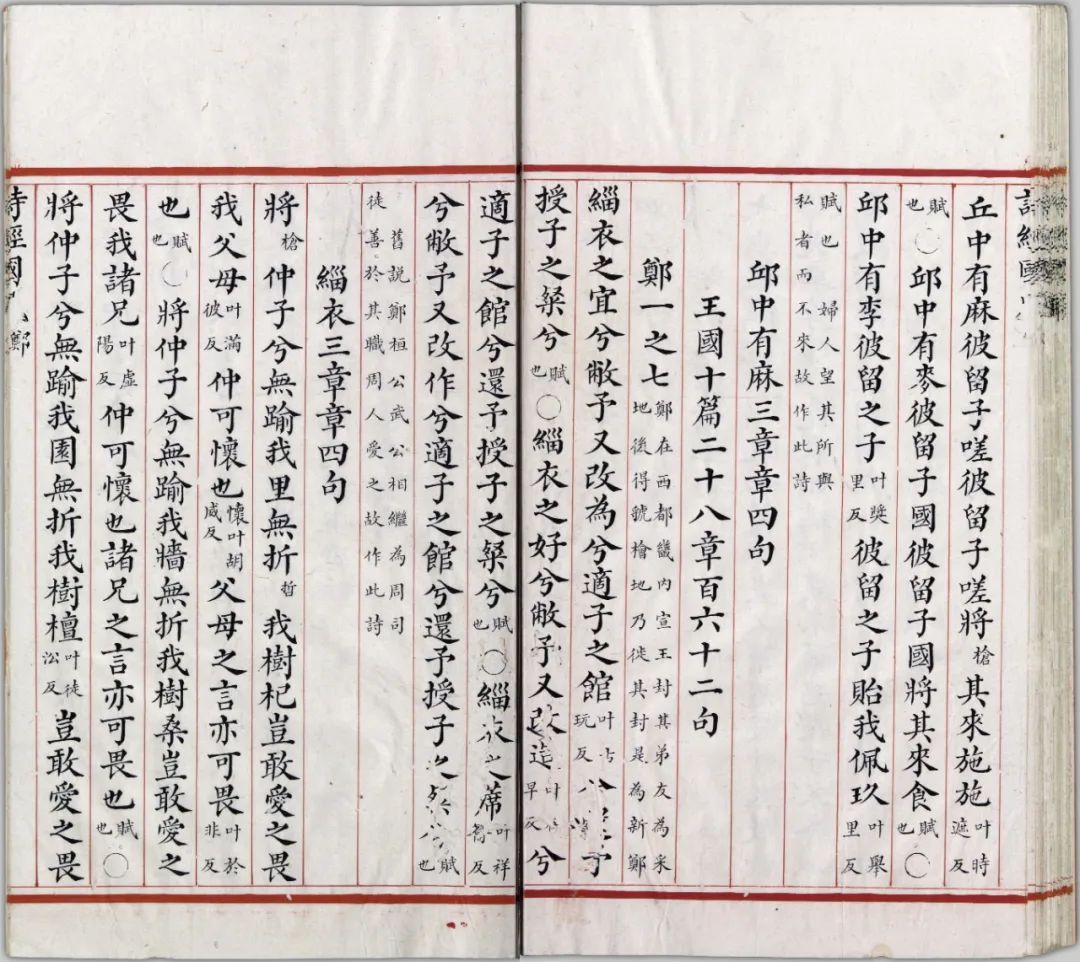 詩經國
丘中有麻彼留子嗟彼留子嗟將槍其來施施叶時遮反
賦也○邱中有麥彼留子國彼留子國將其來食賦也○
邱中有李彼留之子叶奬里反彼留之子貽我佩玖叶舉里反
賦也婦人望其所與私者而不來故作此詩
邱中有麻三章章四句
王國十篇二十八章百六十二句
鄭一之七鄭在西都畿內宣王封其弟友為采地後得號檜地乃徙其封是為新鄭
緇衣之宜兮敝予又改為兮適子之館叶古玩反兮還予
授子之粲兮賦也○緇衣之好兮敝予又改造叶早反兮
適子之館兮還予授子之粲兮賦也○緇衣之蓆叶祥籥反
兮敝予又改作兮適子之館兮還予授子之粲兮賦也
舊說鄭桓公武公相繼為周司徒善於其職周人愛之故作此詩
緇衣三章章四句
將槍仲子兮無踰我里無折哲我樹杞豈敢愛之畏
我父母叶滿彼反仲可懷也懷叶胡威反父母之言亦可畏叶於非反
也賦也○將仲子兮無踰我牆無折我樹桑豈敢愛之
畏我諸兄叶虛陽反仲可懷也諸兄之言亦可畏也賦也○
將仲子兮無踰我園無折我樹檀叶徒沿反豈敢愛之畏
詩經國 鄭